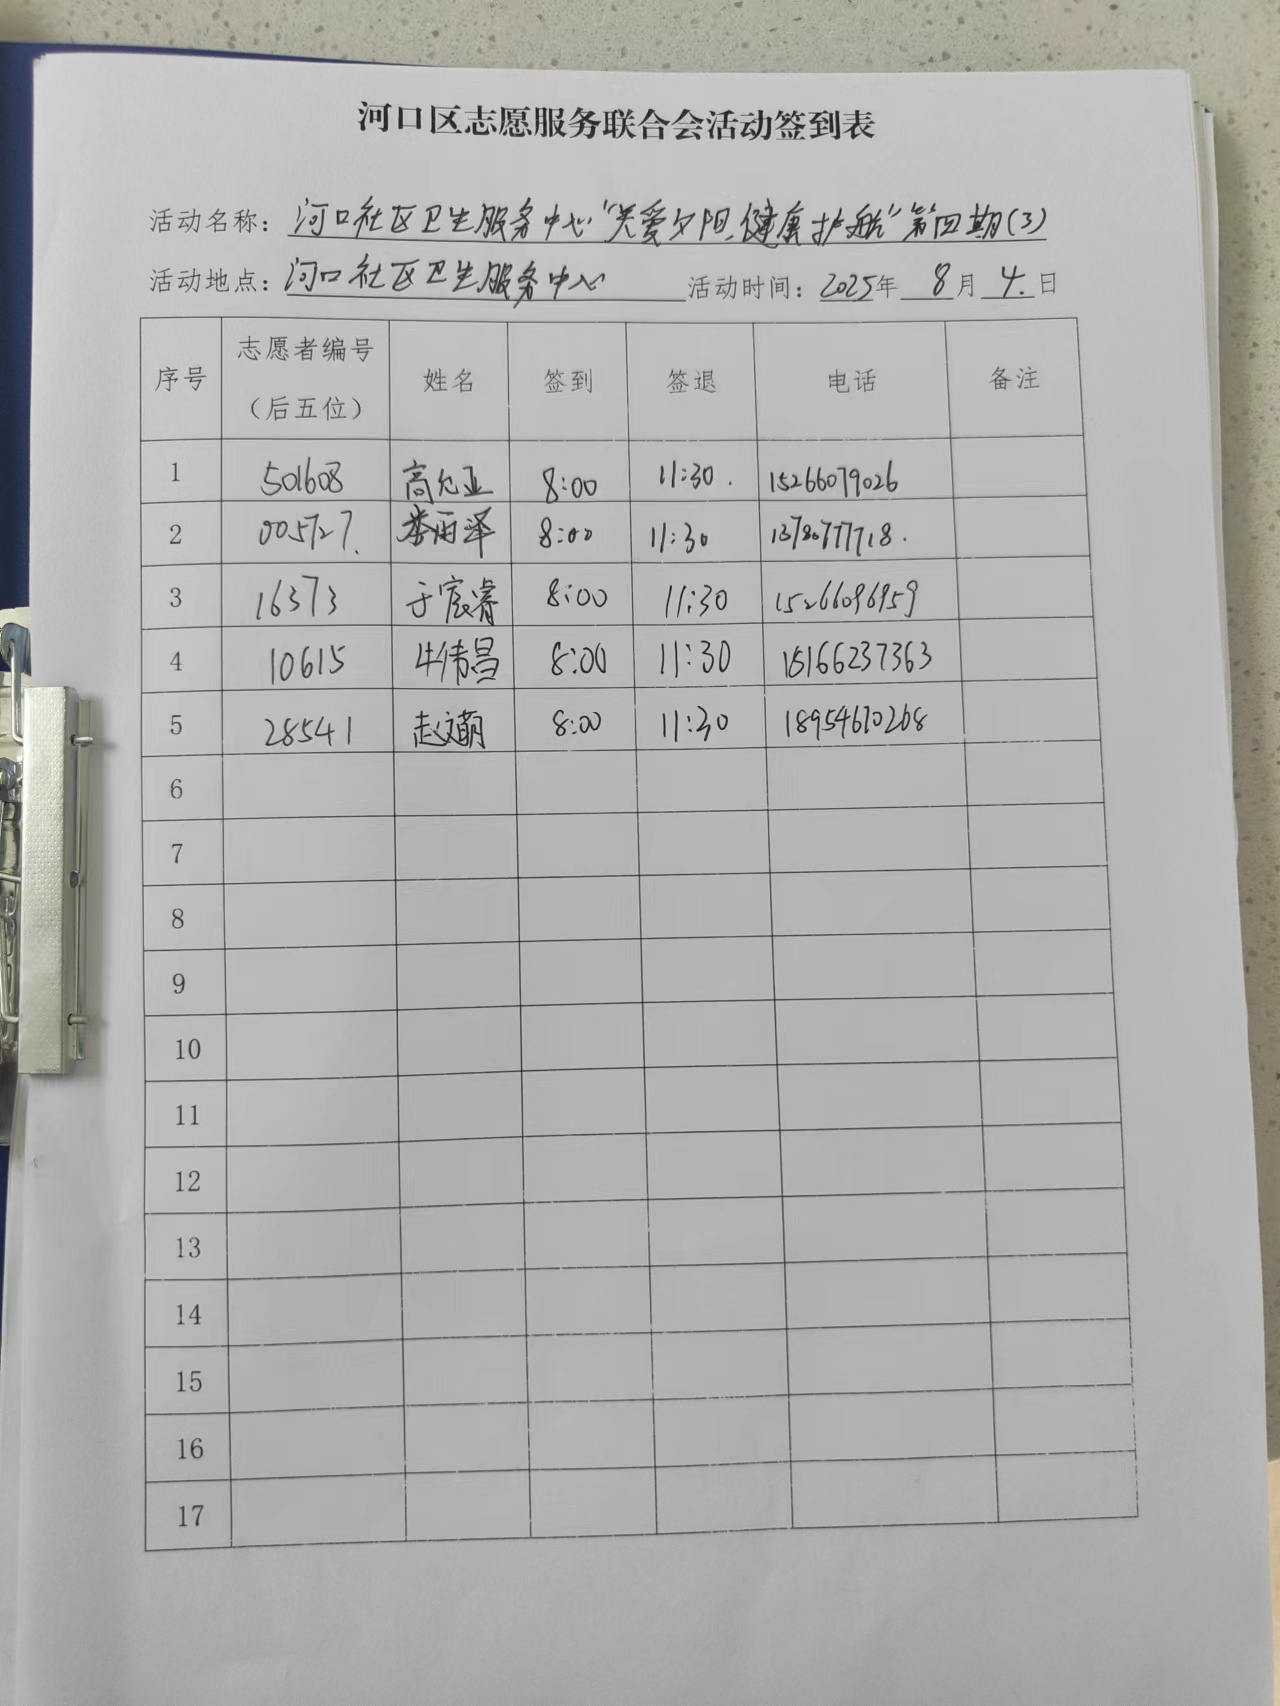 河口区志愿服务联合会活动签到表
活动名称：河口社区卫生服务中心“关爱夕阳，健康护航”第四期(3)
活动地点：河口社区卫生服务中心 活动时间：2025年 8月 4.日
序号 志愿者编号（后五位） 姓名 签到 签退 电话 备注
1 501608 高允亚 8:00 11:30. 15266079026
2 005727. 李雨泽 8:00 11:30 13780777718.
3 16373 于宸睿 8:00 11:30 15266096959
4 10615 牛伟昌 8:00 11:30 15166237363
5 28541 赵文萌 8:00 11:30 18954670268
6
7
8
9
10
11
12
13
14
15
16
17